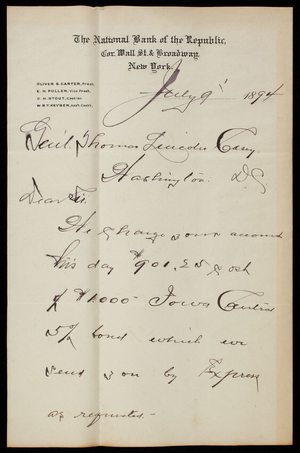 The National Bank of the Republic,
Cor. Wall St. & Broadway.
New York.
OLIVER S. CARTER, Prest.
E. H. PULLEN, Vice Prest.
C. H. STOUT, Cashier
W. B. T. KEYSER, Asst. Cash.
July 9" 1894
Gen'l Thomas Lincoln Casey
Washington D.C.
Dear Sir
We charge your account
this day $901.25
of $1,000 Iowa Central
5% bond which we
send you by Express
as requested.-